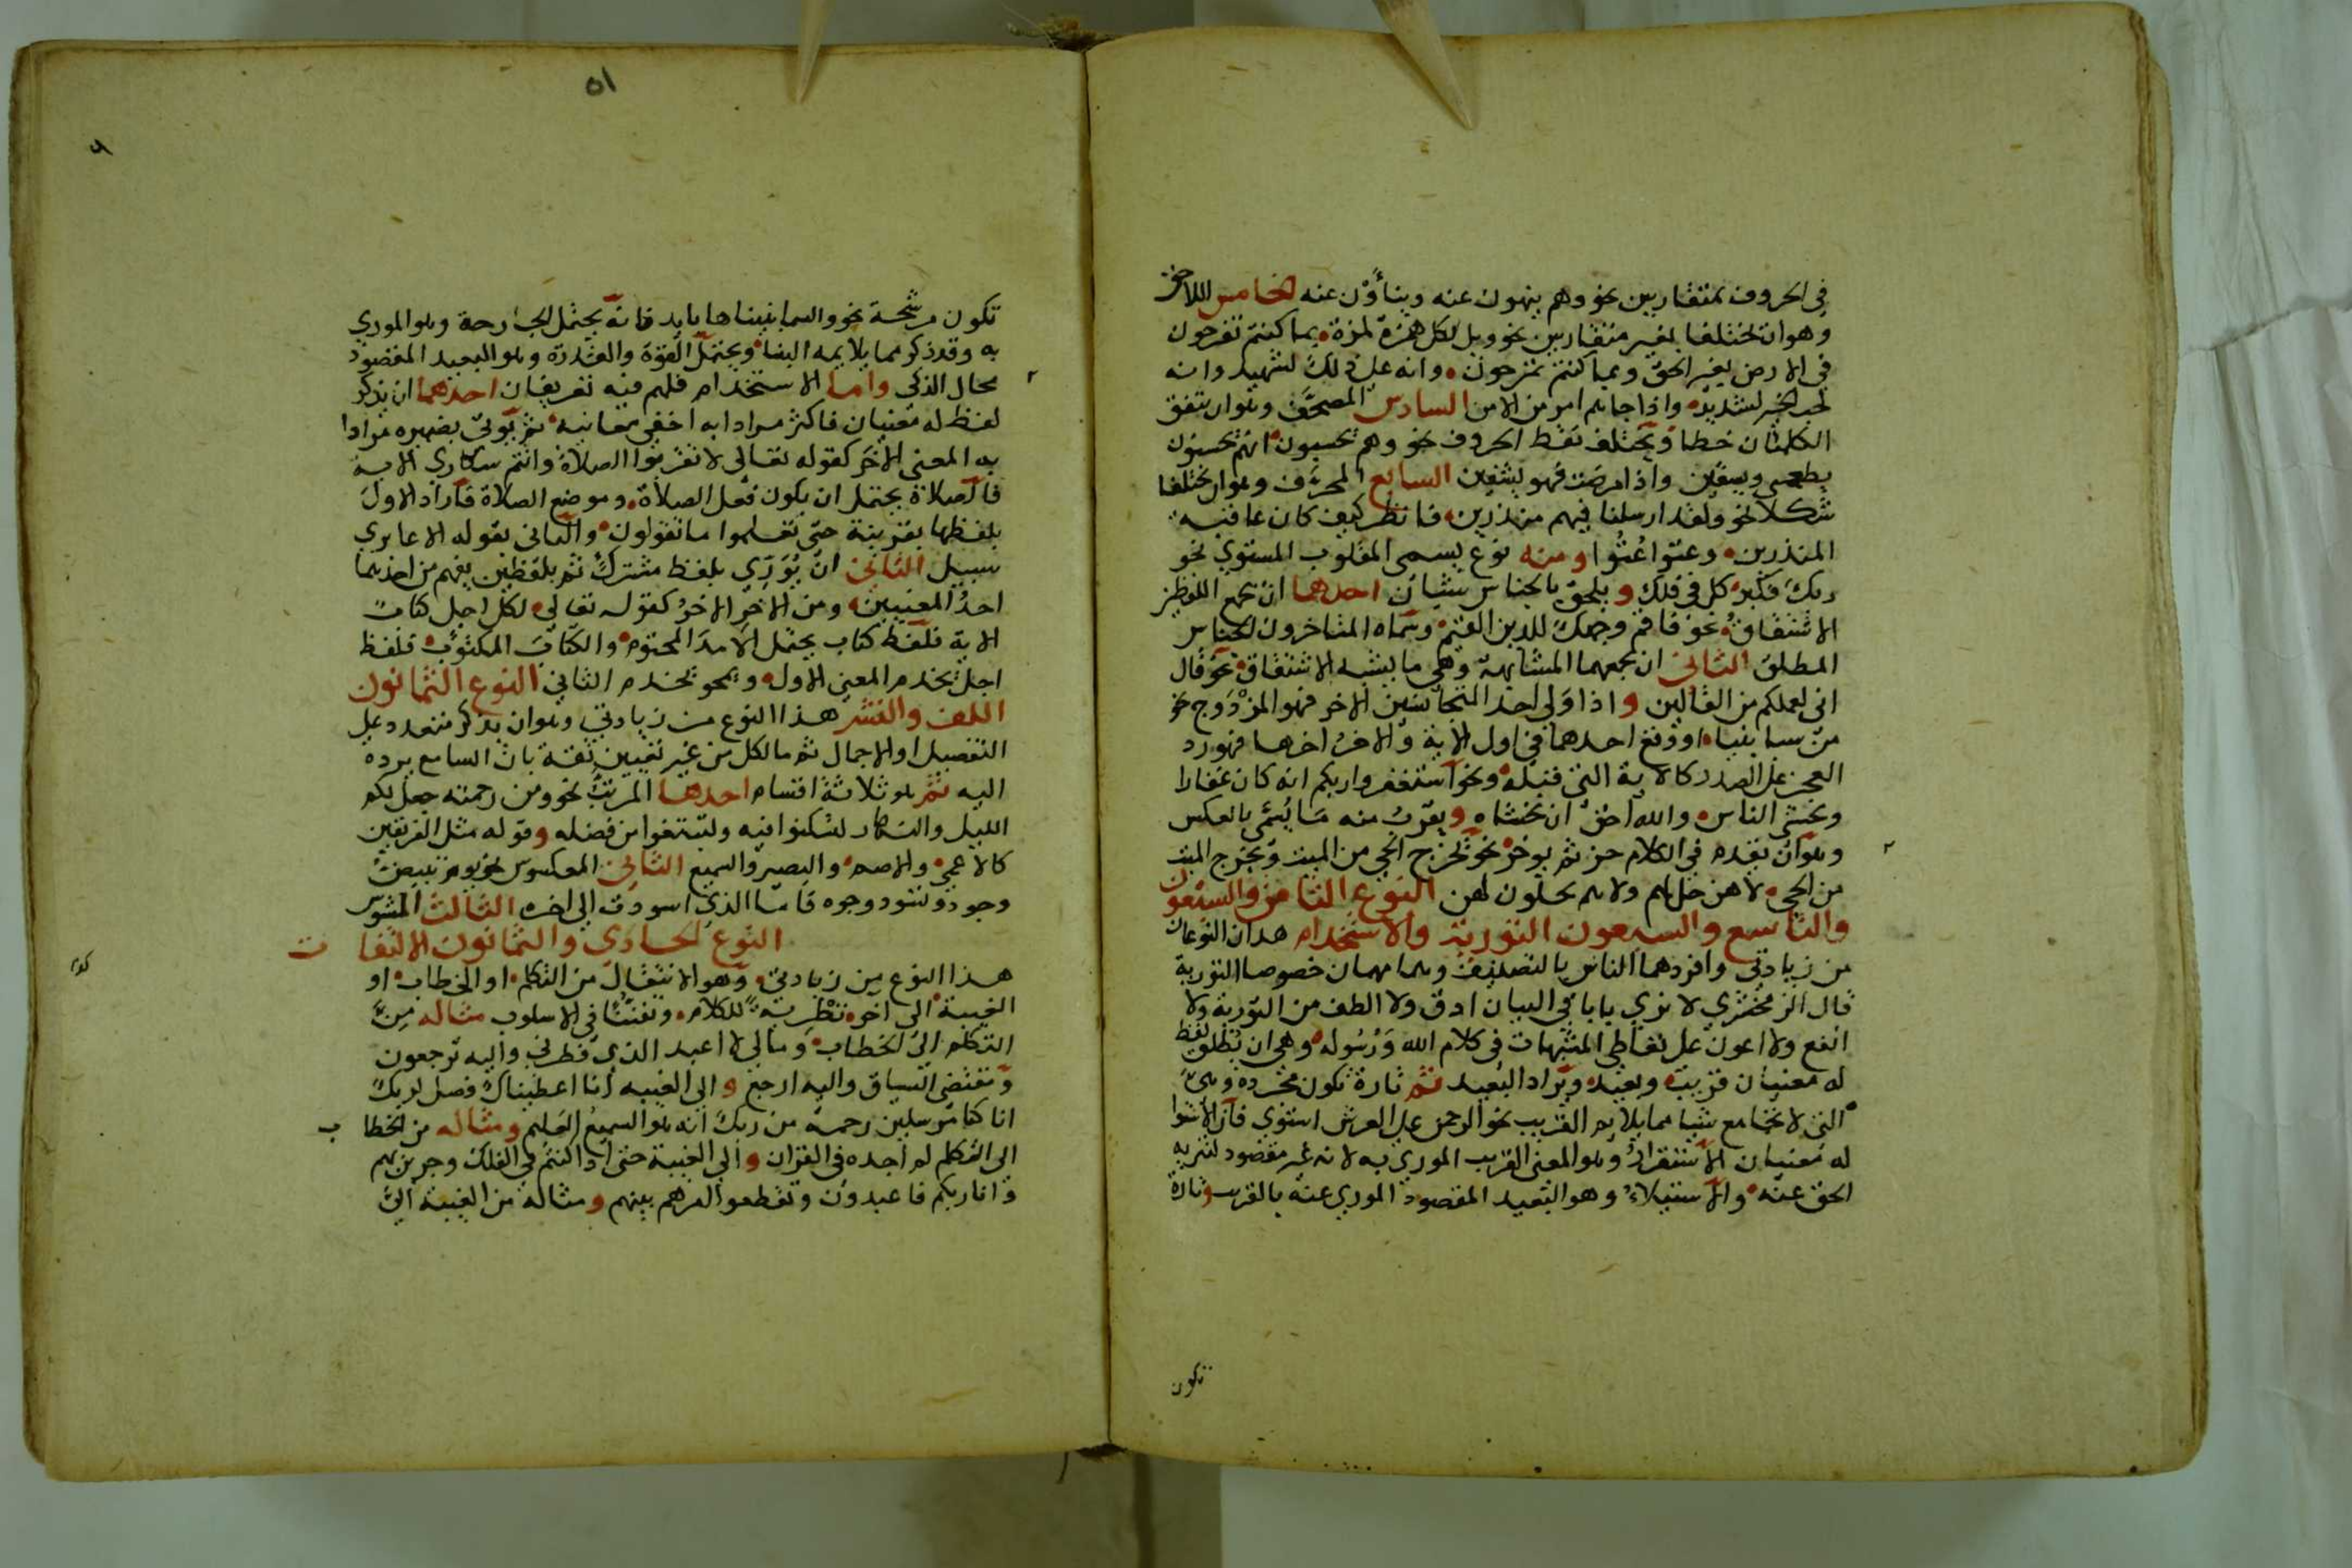 في الحروف متقاربين نحو وهم ينهون عنه وينأون عنه الخامس اللاحق
وهو ان يختلفا بغير متقاربين نحو ويل لكل همزة لمزة بما كنتم تفرحون
في الارض بغير الحق وبما كنتم تمرحون وانه على ذلك لشهيد وانه
لحب الخير لشديد واذا جاهم امر من الامن السادس المصحف وهو ان يتفق
الكلمتان خطا ويختلف نقط الحروف نحو وهم يحسبون انهم يحسنون
يطعمني ويسقين واذا مرضت فهو يشفين السابع المحرف وهو ان يختلفا
شكلا نحو ولقد ارسلنا فيهم منذرين فانظر كيف كان عاقبة
المنذرين وعتوا عتوا ومنه نوع يسمى المقلوب المستوي نحو
ربك فكبر كل في فلك ويلحق بالجناس شيئان احدهما ان يجمع اللفظين
الاشتقاق نحو فاقم وجهك للدين القيم وسماه المتاخرون الجناس
المطلق الثاني ان يجمعهما المشابهة وهي ما يشبه الاشتقاق نحو قال
اني لعملكم من القالين واذا ولي احد المتجانسين الاخر فهو المزدوج نحو
من سبا بنبا او وقع احدهما في اول الاية والاخر اخرها فهو رد
العجز على الصدر كالاية التي قبله ونحو استغفروا ربكم انه كان غفارا
وتخشى الناس والله احق ان تخشاه ويقرب منه ما يسمى بالعكس
وهو ان يقدم في الكلام جز ثم يوخر نحو يخرج الحي من الميت ويخرج الميت
من الحي لا هن حل لهم ولا هم يحلون لهن النوع الثامن والسبعون
والتاسع والسبعون التورية والاستخدام هذان النوعان
من زيادتي وافردهما الناس بالتصنيف وهما مهمان خصوصا التورية
قال الزمخشري لا نرى بابا في البيان ادق ولا الطف من التورية ولا
انفع ولا اعون على تعاطي المشبهات في كلام الله ورسوله وهي ان يطلق لفظ
له معنيان قريب وبعيد ويراد البعيد ثم تارة تكون مجردة وهي
التي لا تجامع شيا مما يلايم القريب نحو الرحمن على العرش استوى فان الاستوا
له معنيان الاستقرار وهو المعنى القريب المورى به لانه غير مقصود لتنزيه
الحق عنه والاستيلاء وهو البعيد المقصود المورى عنه بالقريب وتارة
تكون
٥١
تكون مرشحة نحو والسما بنيناها بايد فانه يحتمل الجارحة وهو المورى
به وقد ذكر مما يلايمه البنا ويحتمل القوة والقدرة وهو البعيد المقصود
محال الذكي واما الاستخدام فلهم فيه تعريفان احدهما ان يذكر
لفظ له معنيان فاكثر مرادا به اخفى معانيه ثم يوتى بضميره مرادا
به المعنى الاخر كقوله تعالى لا تقربوا الصلاة وانتم سكارى الاية
فالصلاة يحتمل ان يكون فعل الصلاة وموضع الصلاة فاراد الاول
بلفظها بقرينة حتى تعلموا ما تقولون والثاني بقوله الا عابري
سبيل الثاني ان يوري بلفظ مشترك ثم بلفظين يفهم من احدهما
احد المعنيين ومن الاخر الاخر كقوله تعالى لكل اجل كتاب
الاية فلفظ كتاب يحتمل الامد المحتوم والكتاب المكتوب فلفظ
اجل يخدم المعنى الاول ويمحو يخدم الثاني النوع الثمانون
اللف والنشر هذا النوع من زيادتي وهو ان يذكر متعدد على
التفصيل او الاجمال ثم ما لكل من غير تعيين ثقة بان السامع يرده
اليه ثم هو ثلاثة اقسام احدها المرتب نحو ومن رحمته جعل لكم
الليل والنهار لتسكنوا فيه ولتبتغوا من فضله وقوله مثل الفريقين
كالاعمى والاصم والبصير والسميع الثاني المعكوس نحو يوم تبيض
وجوه وتسود وجوه فاما الذين اسودت الى اخره الثالث المشوس
النوع الحادي والثمانون الالتفات
هذا النوع من زيادتي وهو الانتقال من التكلم او الخطاب او
الغيبة الى اخر تطرية للكلام وتفننا في الاسلوب مثاله من
التكلم الى الخطاب وما لي لا اعبد الذي فطرني واليه ترجعون
ومقتضى السياق واليه ارجع والى الغيبه انا اعطيناك فصل لربك
انا كنا مرسلين رحمة من ربك انه هو السميع العليم ومثاله من الخطاب
الى التكلم لم اجده في القران والى الغيبة حتى اذا كنتم في الفلك وجرين بهم
وانا ربكم فاعبدون وتقطعوا امرهم بينهم ومثاله من الغيبة الى